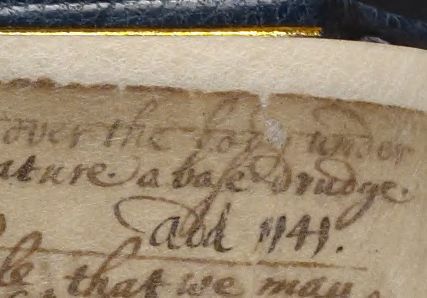 over the body under
ature. a base drudge.
add 1141.
le that we may